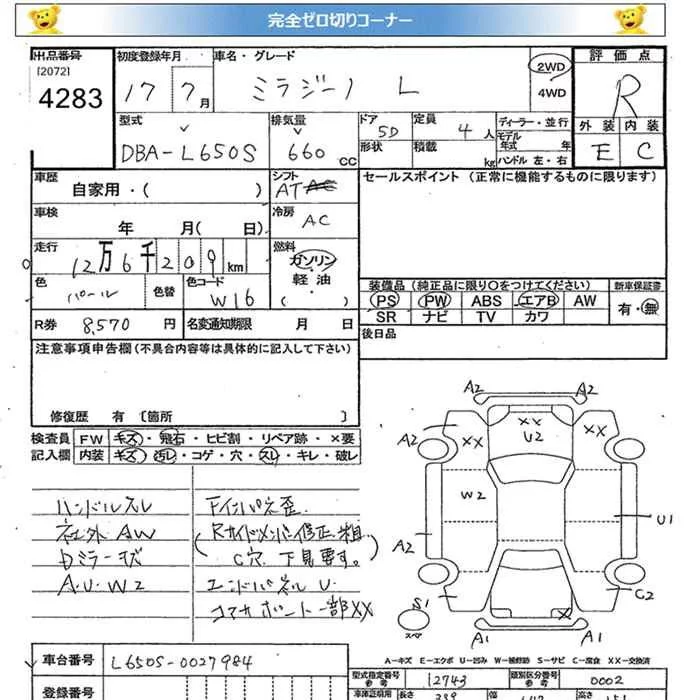 完全ゼロ切りコーナー
出品番号 初度登録年月 車名・グレード 2WD 評価点
[2072]
4283 17 7月 ミラジーノ L 4WD R
型式 排気量 ドア 定員 ディーラー・並行 外装 内装
DBA-L650S 660cc 5D 4人 モデル年式 年 E C
形状 積載 kg ハンドル 左・右
車歴 シフト セールスポイント (正常に機能するものに限ります)
自家用・( ) AT
車検 冷房
年 月( 日) AC
走行 燃料
12万6千209km ガソリン
色 色替 色コード 軽油 装備品 (純正品に限り○をつけてください) 新車保証書
パール W16 ( ) PS PW ABS エアB AW 有・無
SR ナビ TV カワ
R券 8,570円 名変通知期限 月 日 後日品
注意事項申告欄(不具合内容等は具体的に記入して下さい)
修復歴 有 [箇所 ]
検査員 FW キズ・飛石・ヒビ割・リペア跡・×要
記入欄 内装 キズ・汚レ・コゲ・穴・スレ・キレ・破レ
ハンドルスレ
社外AW
Dミラーキズ
A.U.W2
Fインパネ歪
(Rサイドメンバー修正.粗
C穴 下見要す。)
エンドパネルU.
コアサポート一部XX
A2 A2
A2 XX XX U2 XX
W2
U1
A2
S1 C2
スペア X
A1 A1
A-キズ E-エクボ U-凹み W-補修跡 S-サビ C-腐食 XX-交換済
車台番号 L650S-0027984
型式指定番号 参考 12743 類別区分番号 参考 0002
登録番号
車庫証明用 長さ 339 幅 147 高さ 151